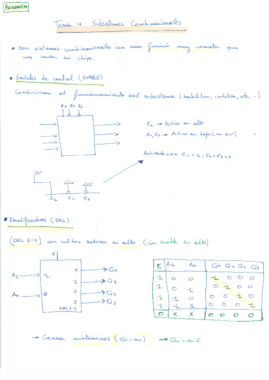 RESUMEN
Tema 4: Subsistemas Combinacionales
• Son sistemas combinacionales con una función muy concreta que
en chips.
• Señales de control (ENABLE)
Condicionan el funcionamiento del subsistema (habilitan, inhiben, etc...)
E1 E2 E3
E1 → Activa en alto
E2, E3 → Activa en bajo
Activado con E1 = 1; E2 = E3 = 0
E1 E2 E3
• Decodificadores (DEC)
(DEC 2:4) con salidas activas en alto (con enable en alto)
E
A1 1 0 Q0
1 Q1
A0 0 2 Q2
3 Q3
DEC 2:4
E A1 A0 Q0 Q1 Q2 Q3
1 0 0 1 0 0 0
1 0 1 0 1 0 0
1 1 0 0 0 1 0
1 1 1 0 0 0 1
0 X X 0 0 0 0
→ Genera minitérminos (Qi = mi) → Qi = mi·E